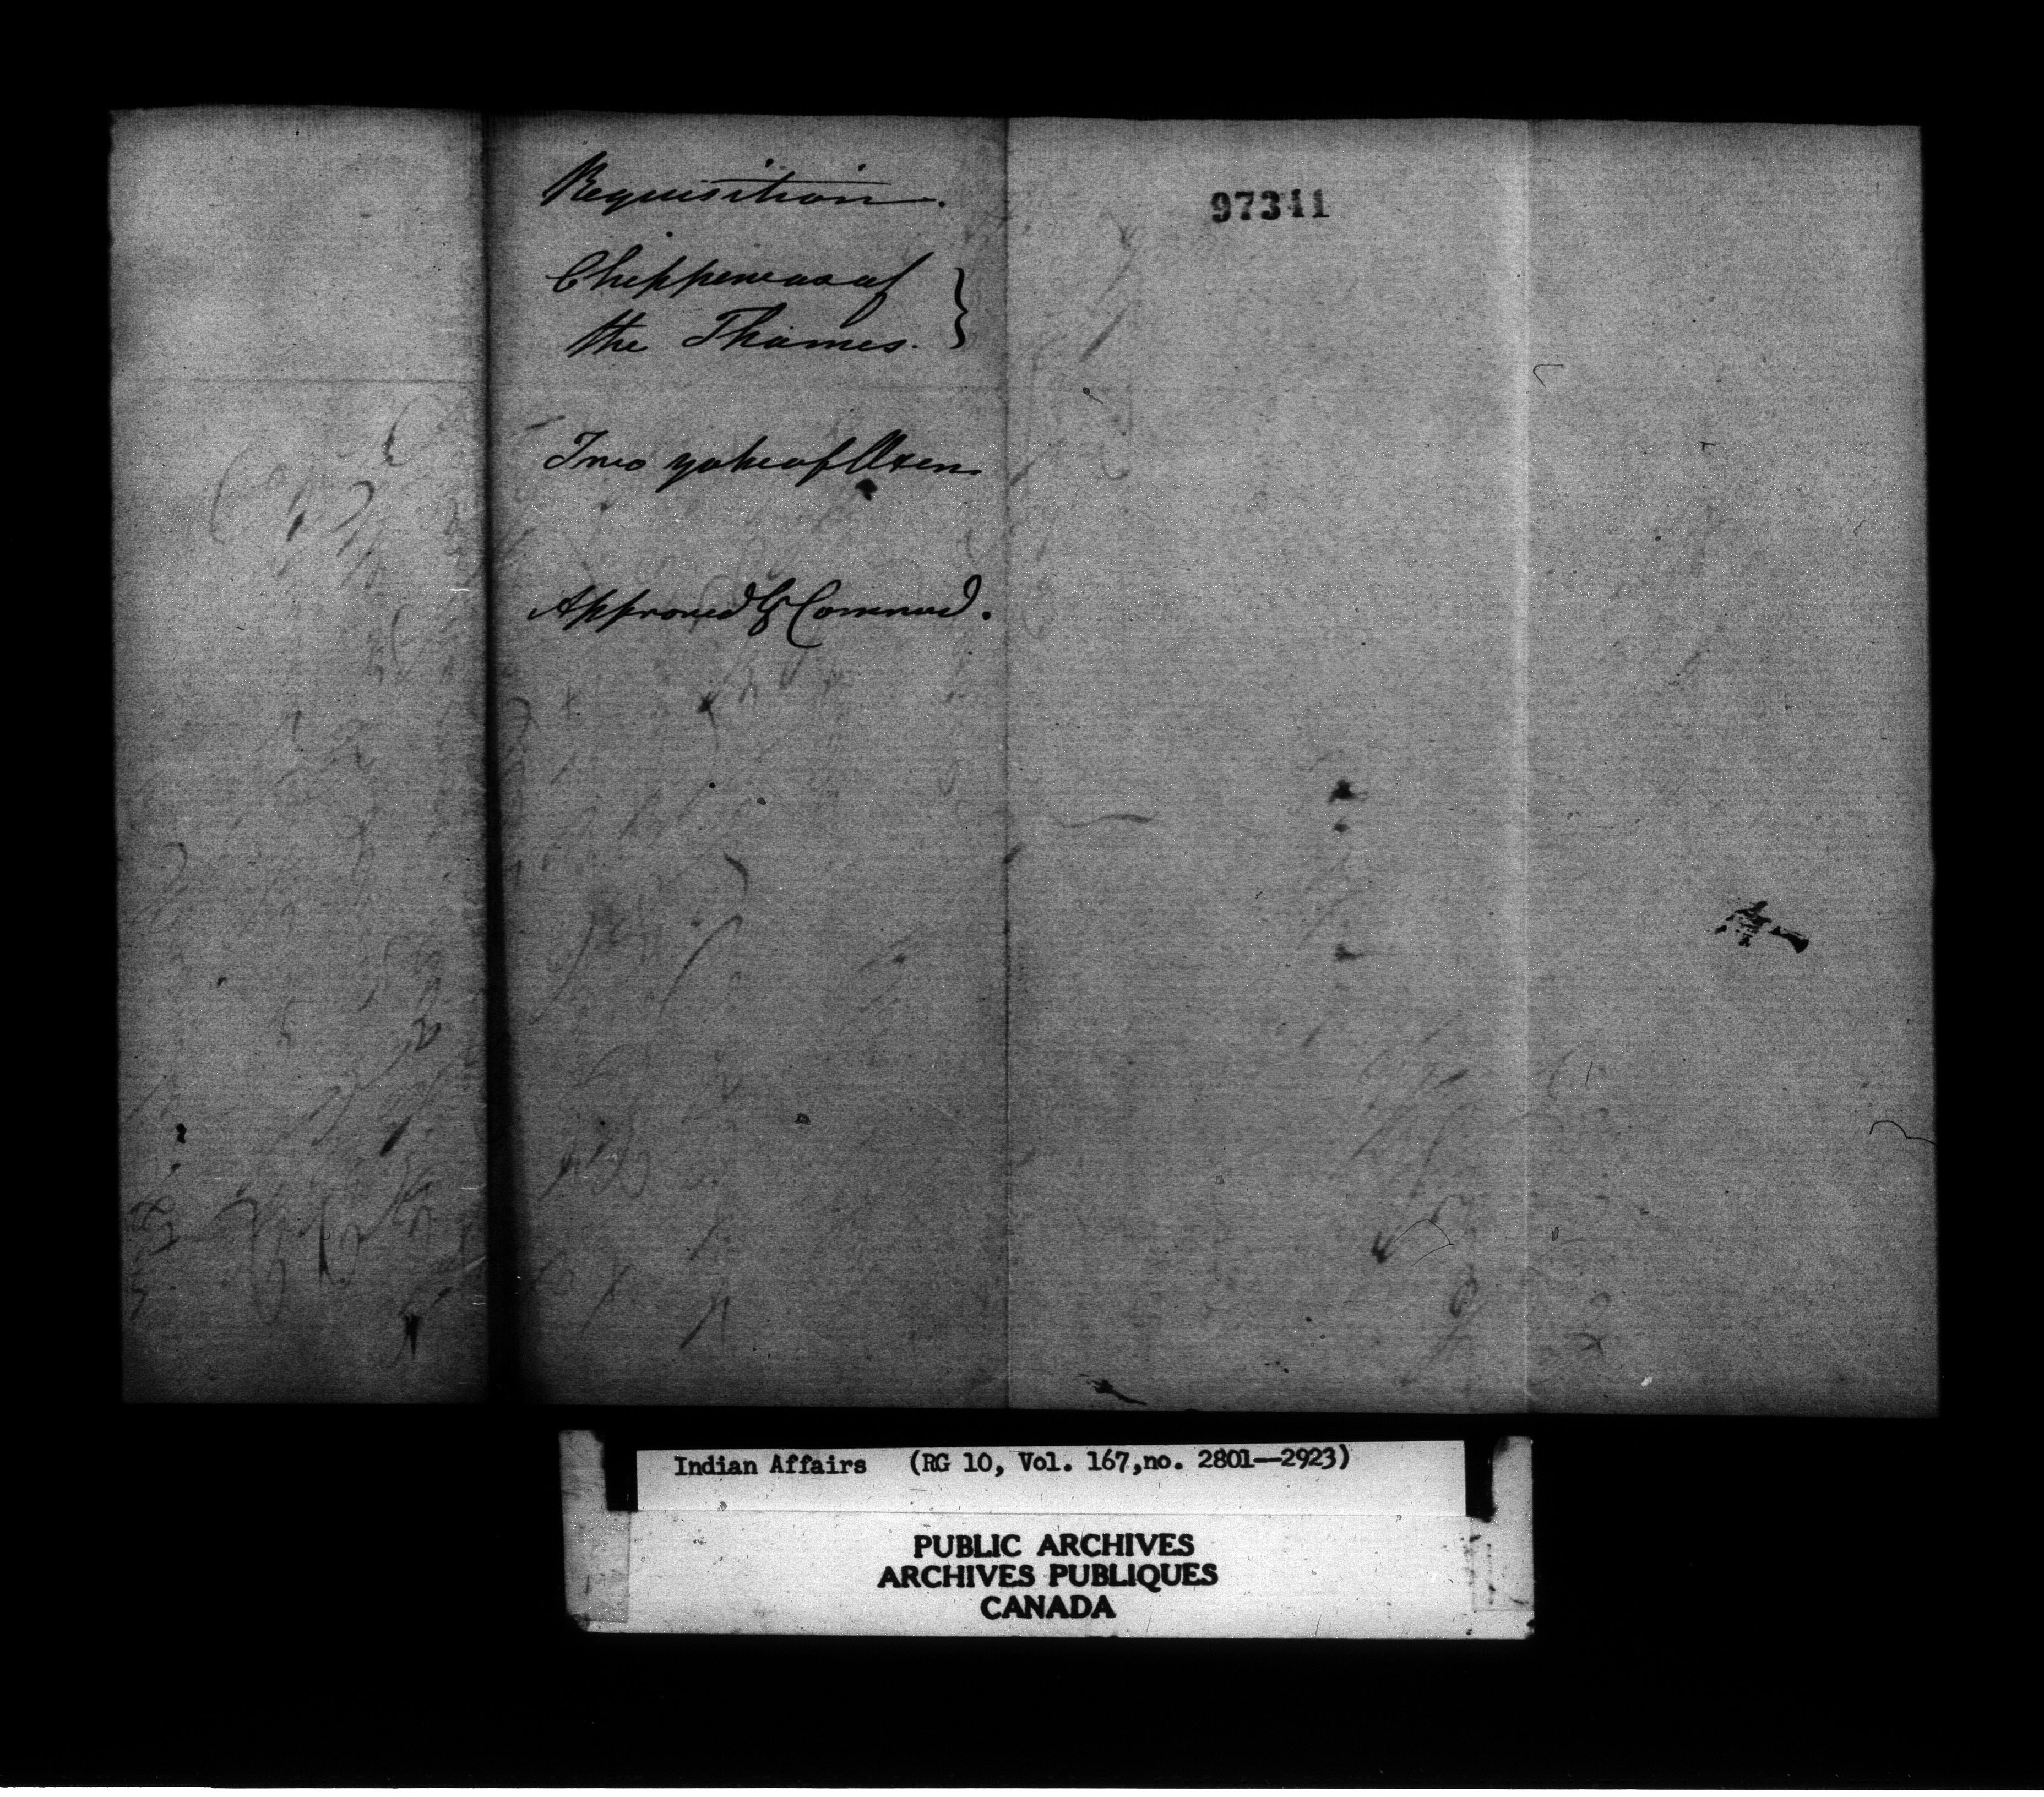 Requisition.
Chippewas of
the Thames. }
Two yoke of Oxen
Approved by
97341
Indian Affairs (RG 10, Vol. 167,no. 2801--2923)
PUBLIC ARCHIVES
ARCHIVES PUBLIQUES
CANADA